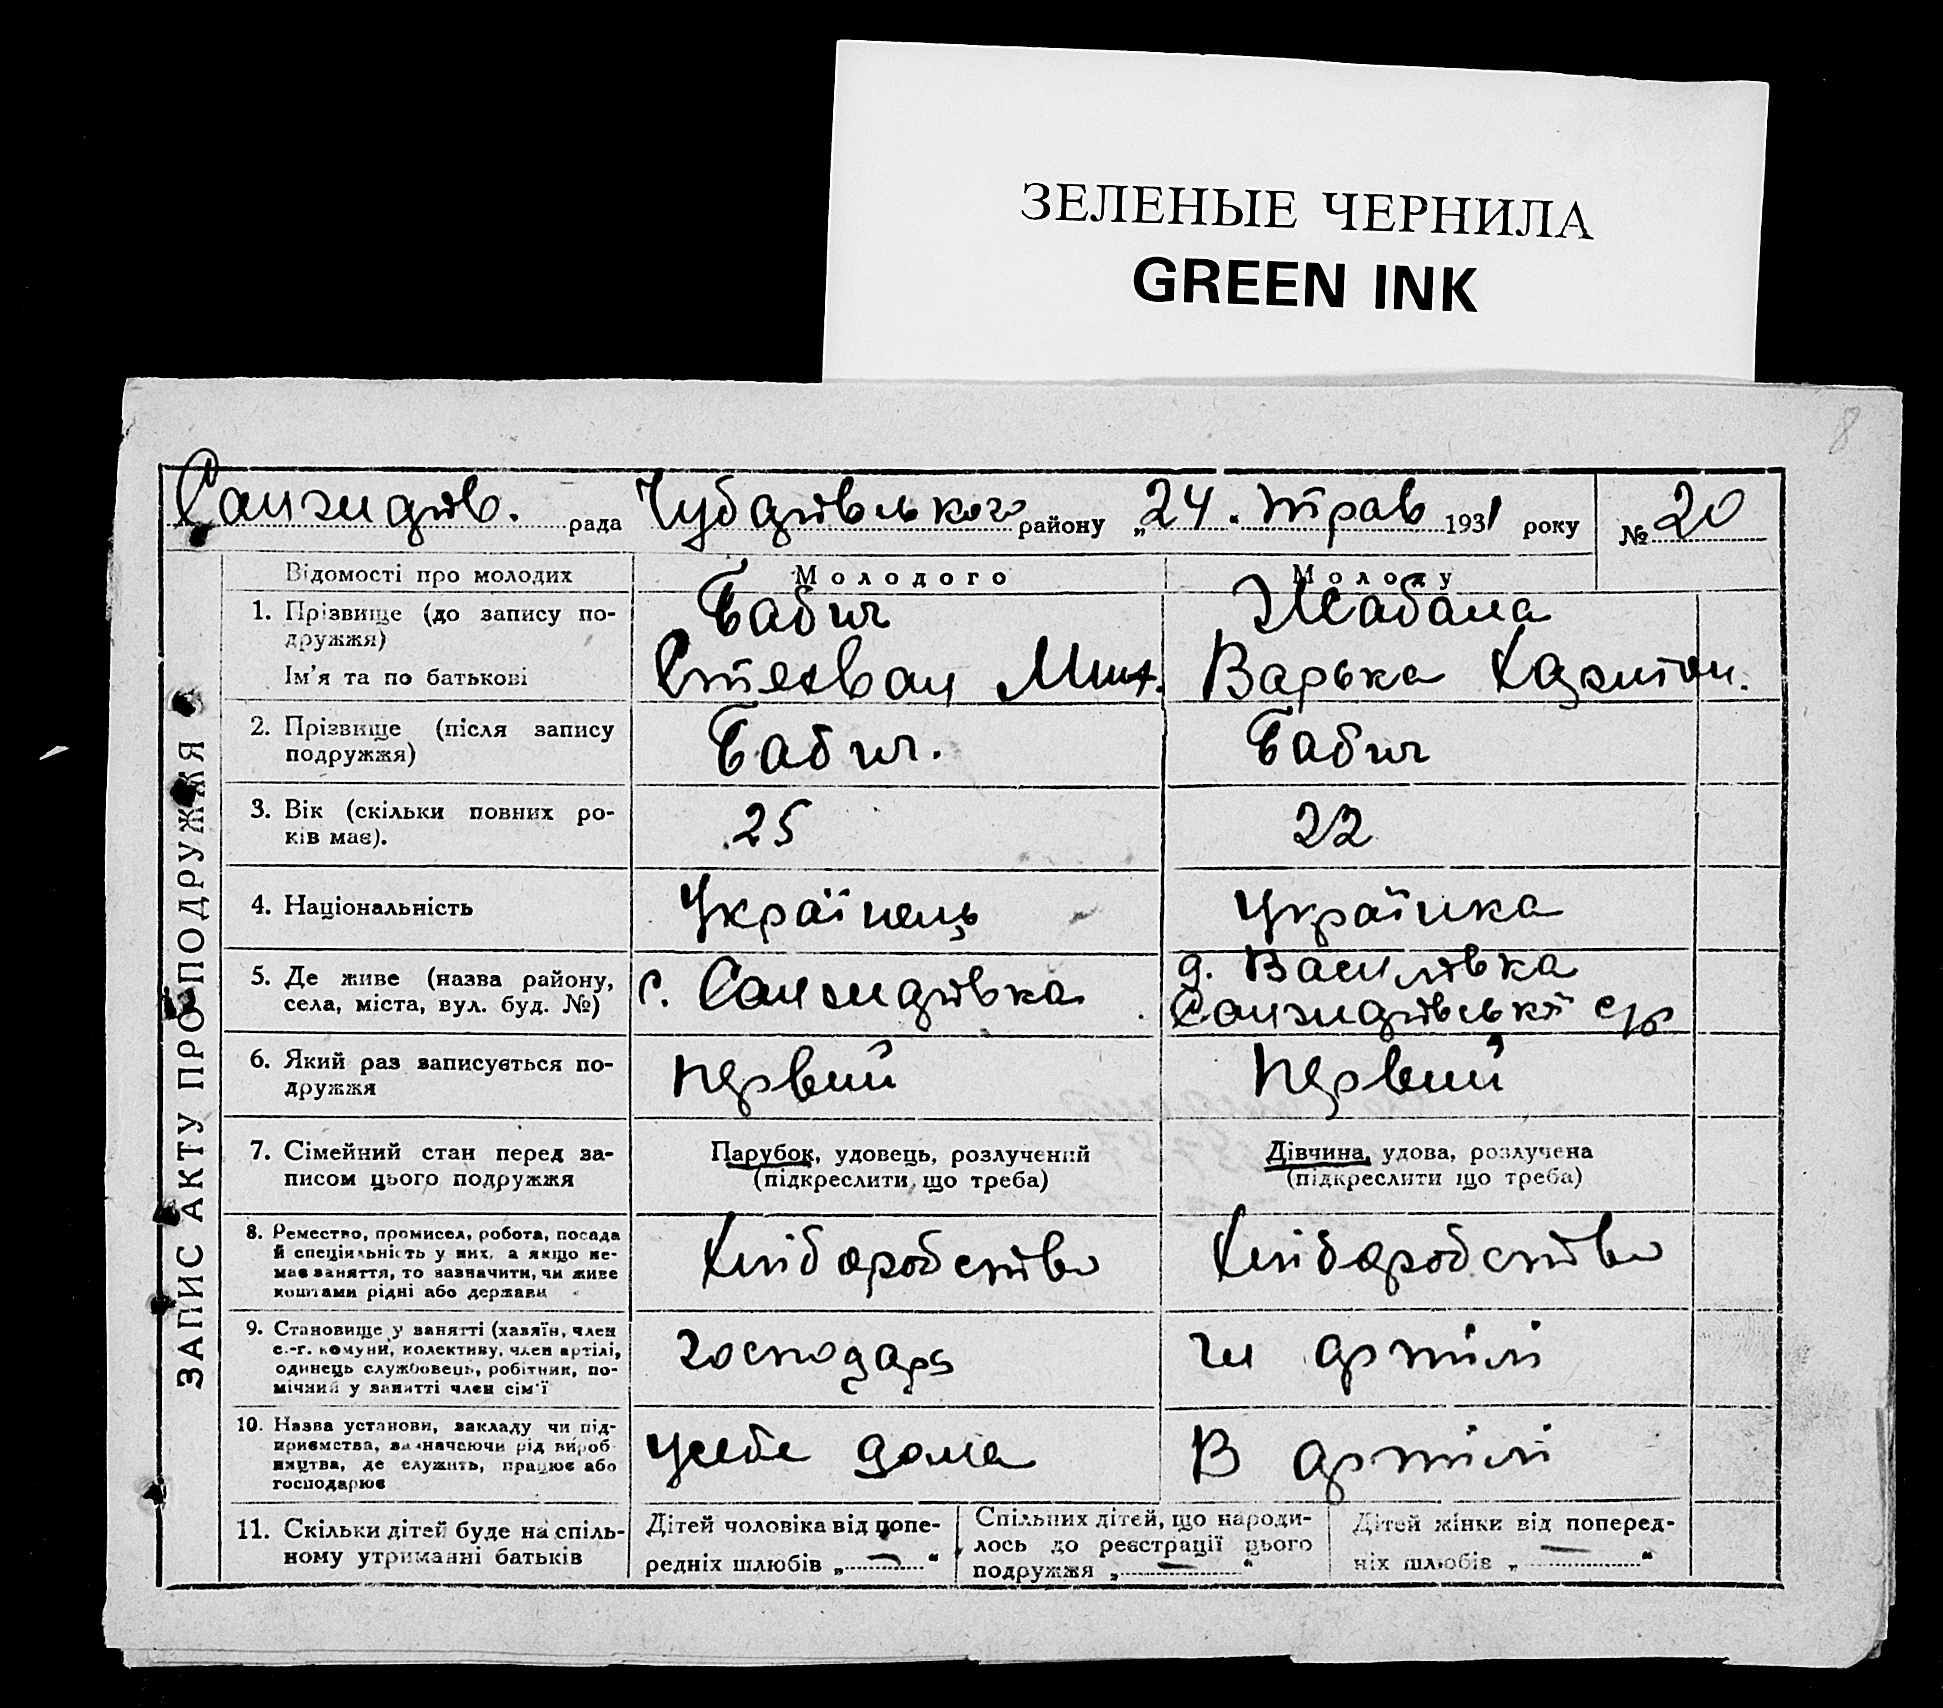 ЗЕЛЕНЫЕ ЧЕРНИЛА
GREEN INK
8
Санжидів. рада Чубарівського району „24. трав 1931 року № 20
ЗАПИС АКТУ ПРО ПОДРУЖЖЯ
Відомості про молодих Молодого Молоду
1. Прізвище (до запису по-
дружжя)
Бабич Жабана
Ім'я та по батькові
Степван Мих. Варька Харитон.
2. Прізвище (після запису
подружжя)
Бабич. Бабич
3. Вік (скільки повних ро-
ків має).
25 22
4. Національність Українець Українка
5. Де живе (назва району,
села, міста, вул. буд. №)
с. Санжидівка
д. Василівка
Санжидівської с/р
6. Який раз записується по-
дружжя
первий первий
7. Сімейний стан перед за-
писом цього подружжя
Парубок, удовець, розлучений
(підкреслити, що треба)
Дівчина, удова, розлучена
(підкреслити що треба)
8. Ремество, промисел, робота, посада
й спеціяльність у них, а якщо не-
має заняття, то зазначити, чи живе
коштами рідні або держави
Хлібаробство Хлібаробство
9. Становище у занятті (хазяїн, член
с.-г. комуни, колективу, член артілі,
одинець службовець, робітник, по-
мічний у занятті член сім'ї
господарь чл артілі
10. Назва установи, закладу чи під-
приємства, зазначаючи рід вироб-
ництва, де служить, працює або
господарює
усебе дома В артілі
11. Скільки дітей буде на спіль-
ному утриманні батьків
Дітей чоловіка від попе-
редніх шлюбів „ — “
Спільних дітей, що народи-
лось до реєстрації цього
подружжя „ — “
Дітей жінки від поперед-
ніх шлюбів „ — “